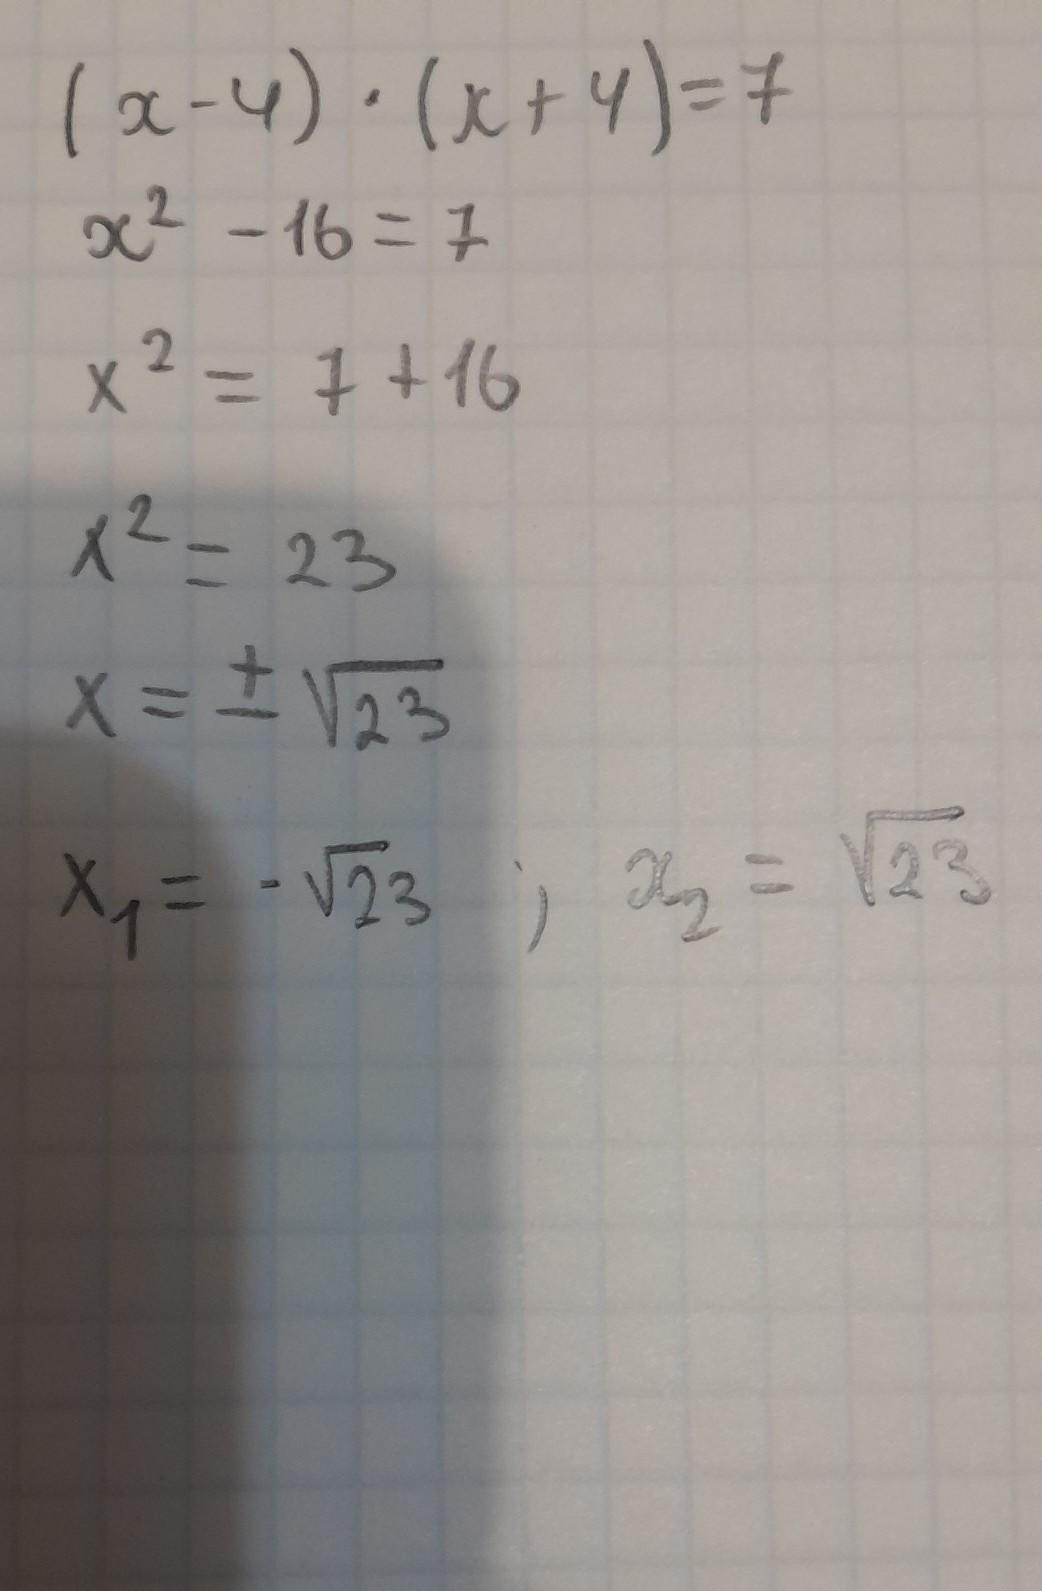 (x-4)·(x+4)=7
x² -16=7
x² = 7+16
x² = 23
x = ±√23
x₁ = -√23 ; x₂ = √23